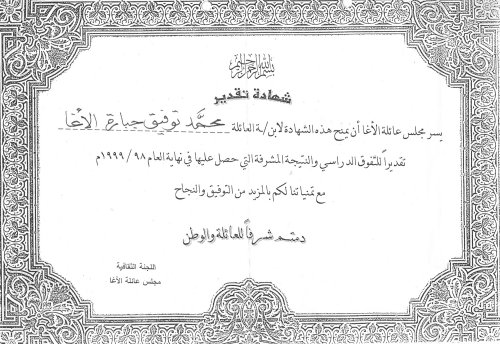 بسم الله الرحمن الرحيم
شهادة تقدير
يسر مجلس عائلة الأغا أن يمنح هذه الشهادة لابن/ـة العائلة محمَّد توفيق جبارة الأغا
تقديراً للتفوق الدراسي والنتيجة المشرفة التي حصل عليها في نهاية العام ٩٨ / ١٩٩٩م
مع تمنياتنا لكم بالمزيد من التوفيق والنجاح
دمتم شرفاً للعائلة والوطن
اللجنة الثقافية
مجلس عائلة الأغا